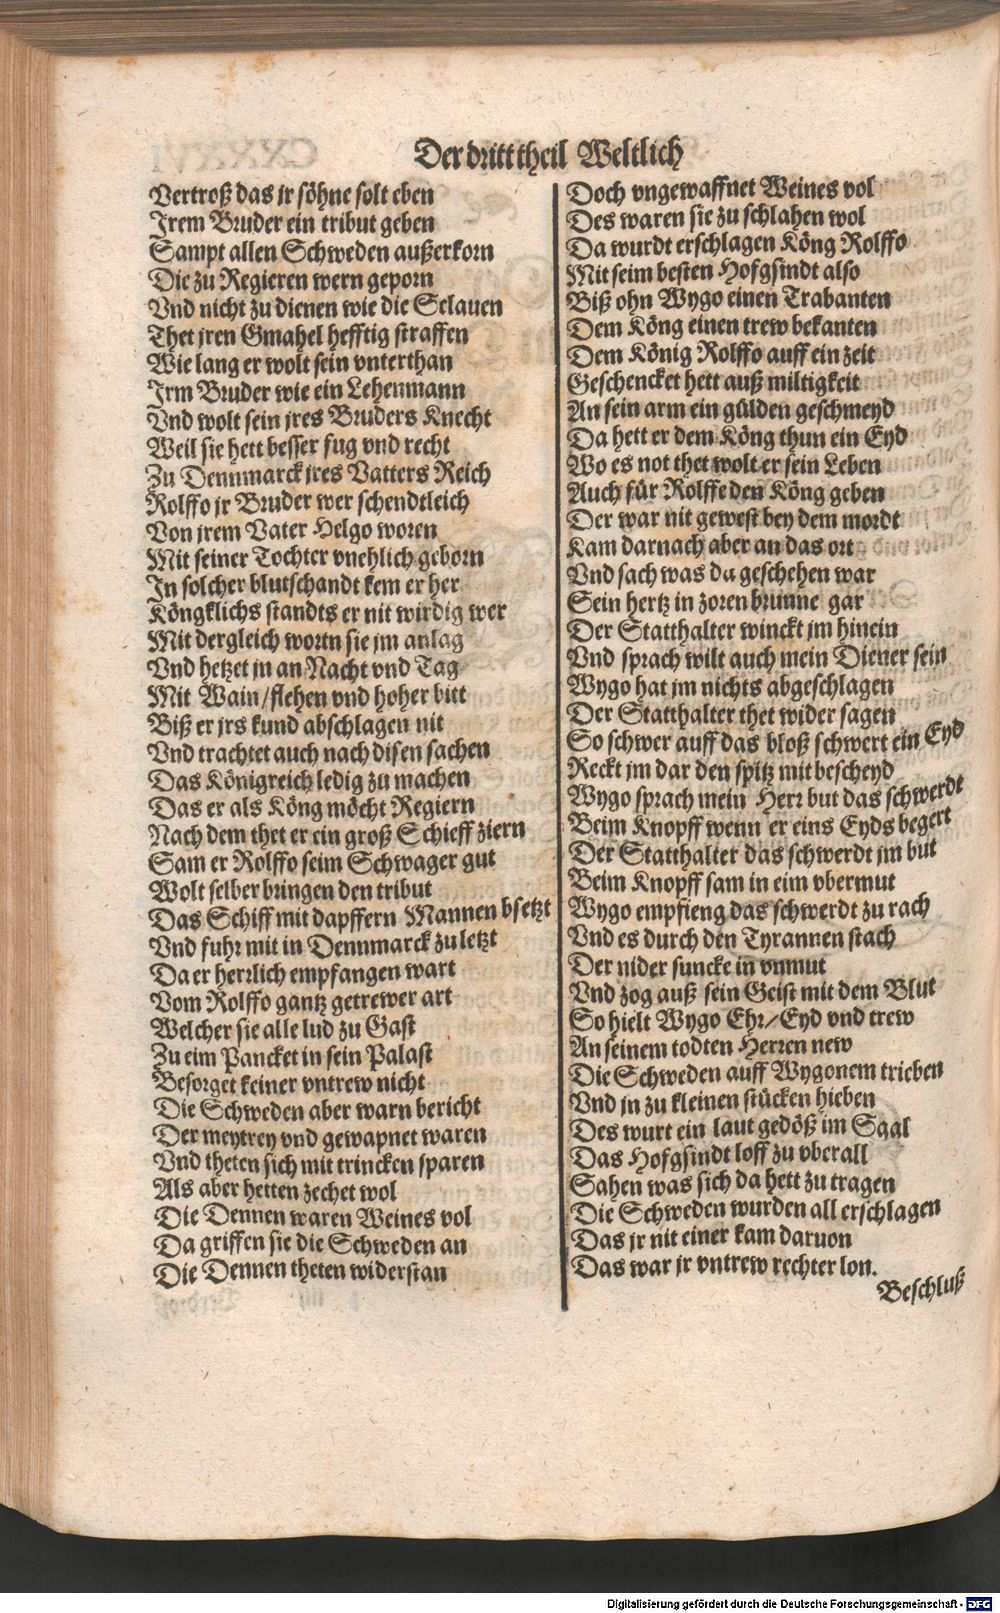 Der dritt theil Weltlich
Vertroß das jr söhne solt eben
Jrem Bruder ein tribut geben
Sampt allen Schweden außerkorn
Die zu Regieren wern geporn
Vnd nicht zu dienen wie die Sclauen
Thet jren Gmahel hefftig straffen
Wie lang er wolt sein vnterthan
Jrm Bruder wie ein Lehenmann
Vnd wolt sein jres Bruders Knecht
Weil sie hett besser fug vnd recht
Zu Dennmarck jres Vatters Reich
Rolffo jr Bruder wer schendtleich
Von jrem Vater Helgo woren
Mit seiner Tochter vnehlich geborn
In solcher blutschandt kem er her
Köngklichs standts er nit wirdig wer
Mit dergleich wortn sie jm anlag
Vnd hetzet jn an Nacht vnd Tag
Mit Wain/flehen vnd hoher bitt
Biß er jrs kund abschlagen nit
Vnd trachtet auch nach disen sachen
Das Königreich ledig zu machen
Das er als Köng möcht Regiern
Nach dem thet er ein groß Schieff ziern
Sam er Rolffo seim Schwager gut
Wolt selber bringen den tribut
Das Schiff mit dapffern Mannen bsetzt
Vnd fuhr mit in Dennmarck zu letzt
Da er herrlich empfangen wart
Vom Rolffo gantz getrewer art
Welcher sie alle lud zu Gast
Zu eim Pancket in sein Palast
Besorget keiner vntrew nicht
Die Schweden aber warn bericht
Der meytrey vnd gewapnet waren
Vnd theten sich mit trincken sparen
Als aber hetten zechet wol
Die Dennen waren Weines vol
Da griffen sie die Schweden an
Die Dennen theten widerstan
Doch vngewaffnet Weines vol
Des waren sie zu schlahen wol
Da wurdt erschlagen Köng Rolffo
Mit seim besten Hofgsindt also
Biß ohn Wygo einen Trabanten
Dem Köng einen trew bekanten
Dem König Rolffo auff ein zeit
Geschencket hett auß miltigkeit
An sein arm ein gülden geschmeyd
Da hett er dem Köng thun ein Eyd
Wo es not thet wolt er sein Leben
Auch für Rolffe den Köng geben
Der war nit gewest bey dem mordt
Kam darnach aber an das ort
Vnd sach was da geschehen war
Sein hertz in zoren brunne gar
Der Statthalter winckt jm hinein
Vnd sprach wilt auch mein Diener sein
Wygo hat jm nichts abgeschlagen
Der Statthalter thet wider sagen
So schwer auff das bloß schwert ein Eyd
Reckt jm dar den spitz mit bescheyd
Wygo sprach mein Herr but das schwerdt
Beim Knopff wenn er eins Eyds begert
Der Statthalter das schwerdt jm but
Beim Knopff sam in eim vbermut
Wygo empfieng das schwerdt zu rach
Vnd es durch den Tyrannen stach
Der nider suncke in vnmut
Vnd zog auß sein Geist mit dem Blut
So hielt Wygo Ehr/Eyd vnd trew
An seinem todten Herren new
Die Schweden auff Wygonem trieben
Vnd jn zu kleinen stücken hieben
Des wurt ein laut gedöß im Saal
Das Hofgsindt loff zu vberall
Sahen was sich da hett zu tragen
Die Schweden wurden all erschlagen
Das jr nit einer kam daruon
Das war jr vntrew rechter lon.
Beschluß
Digitalisierung gefördert durch die Deutsche Forschungsgemeinschaft - DFG